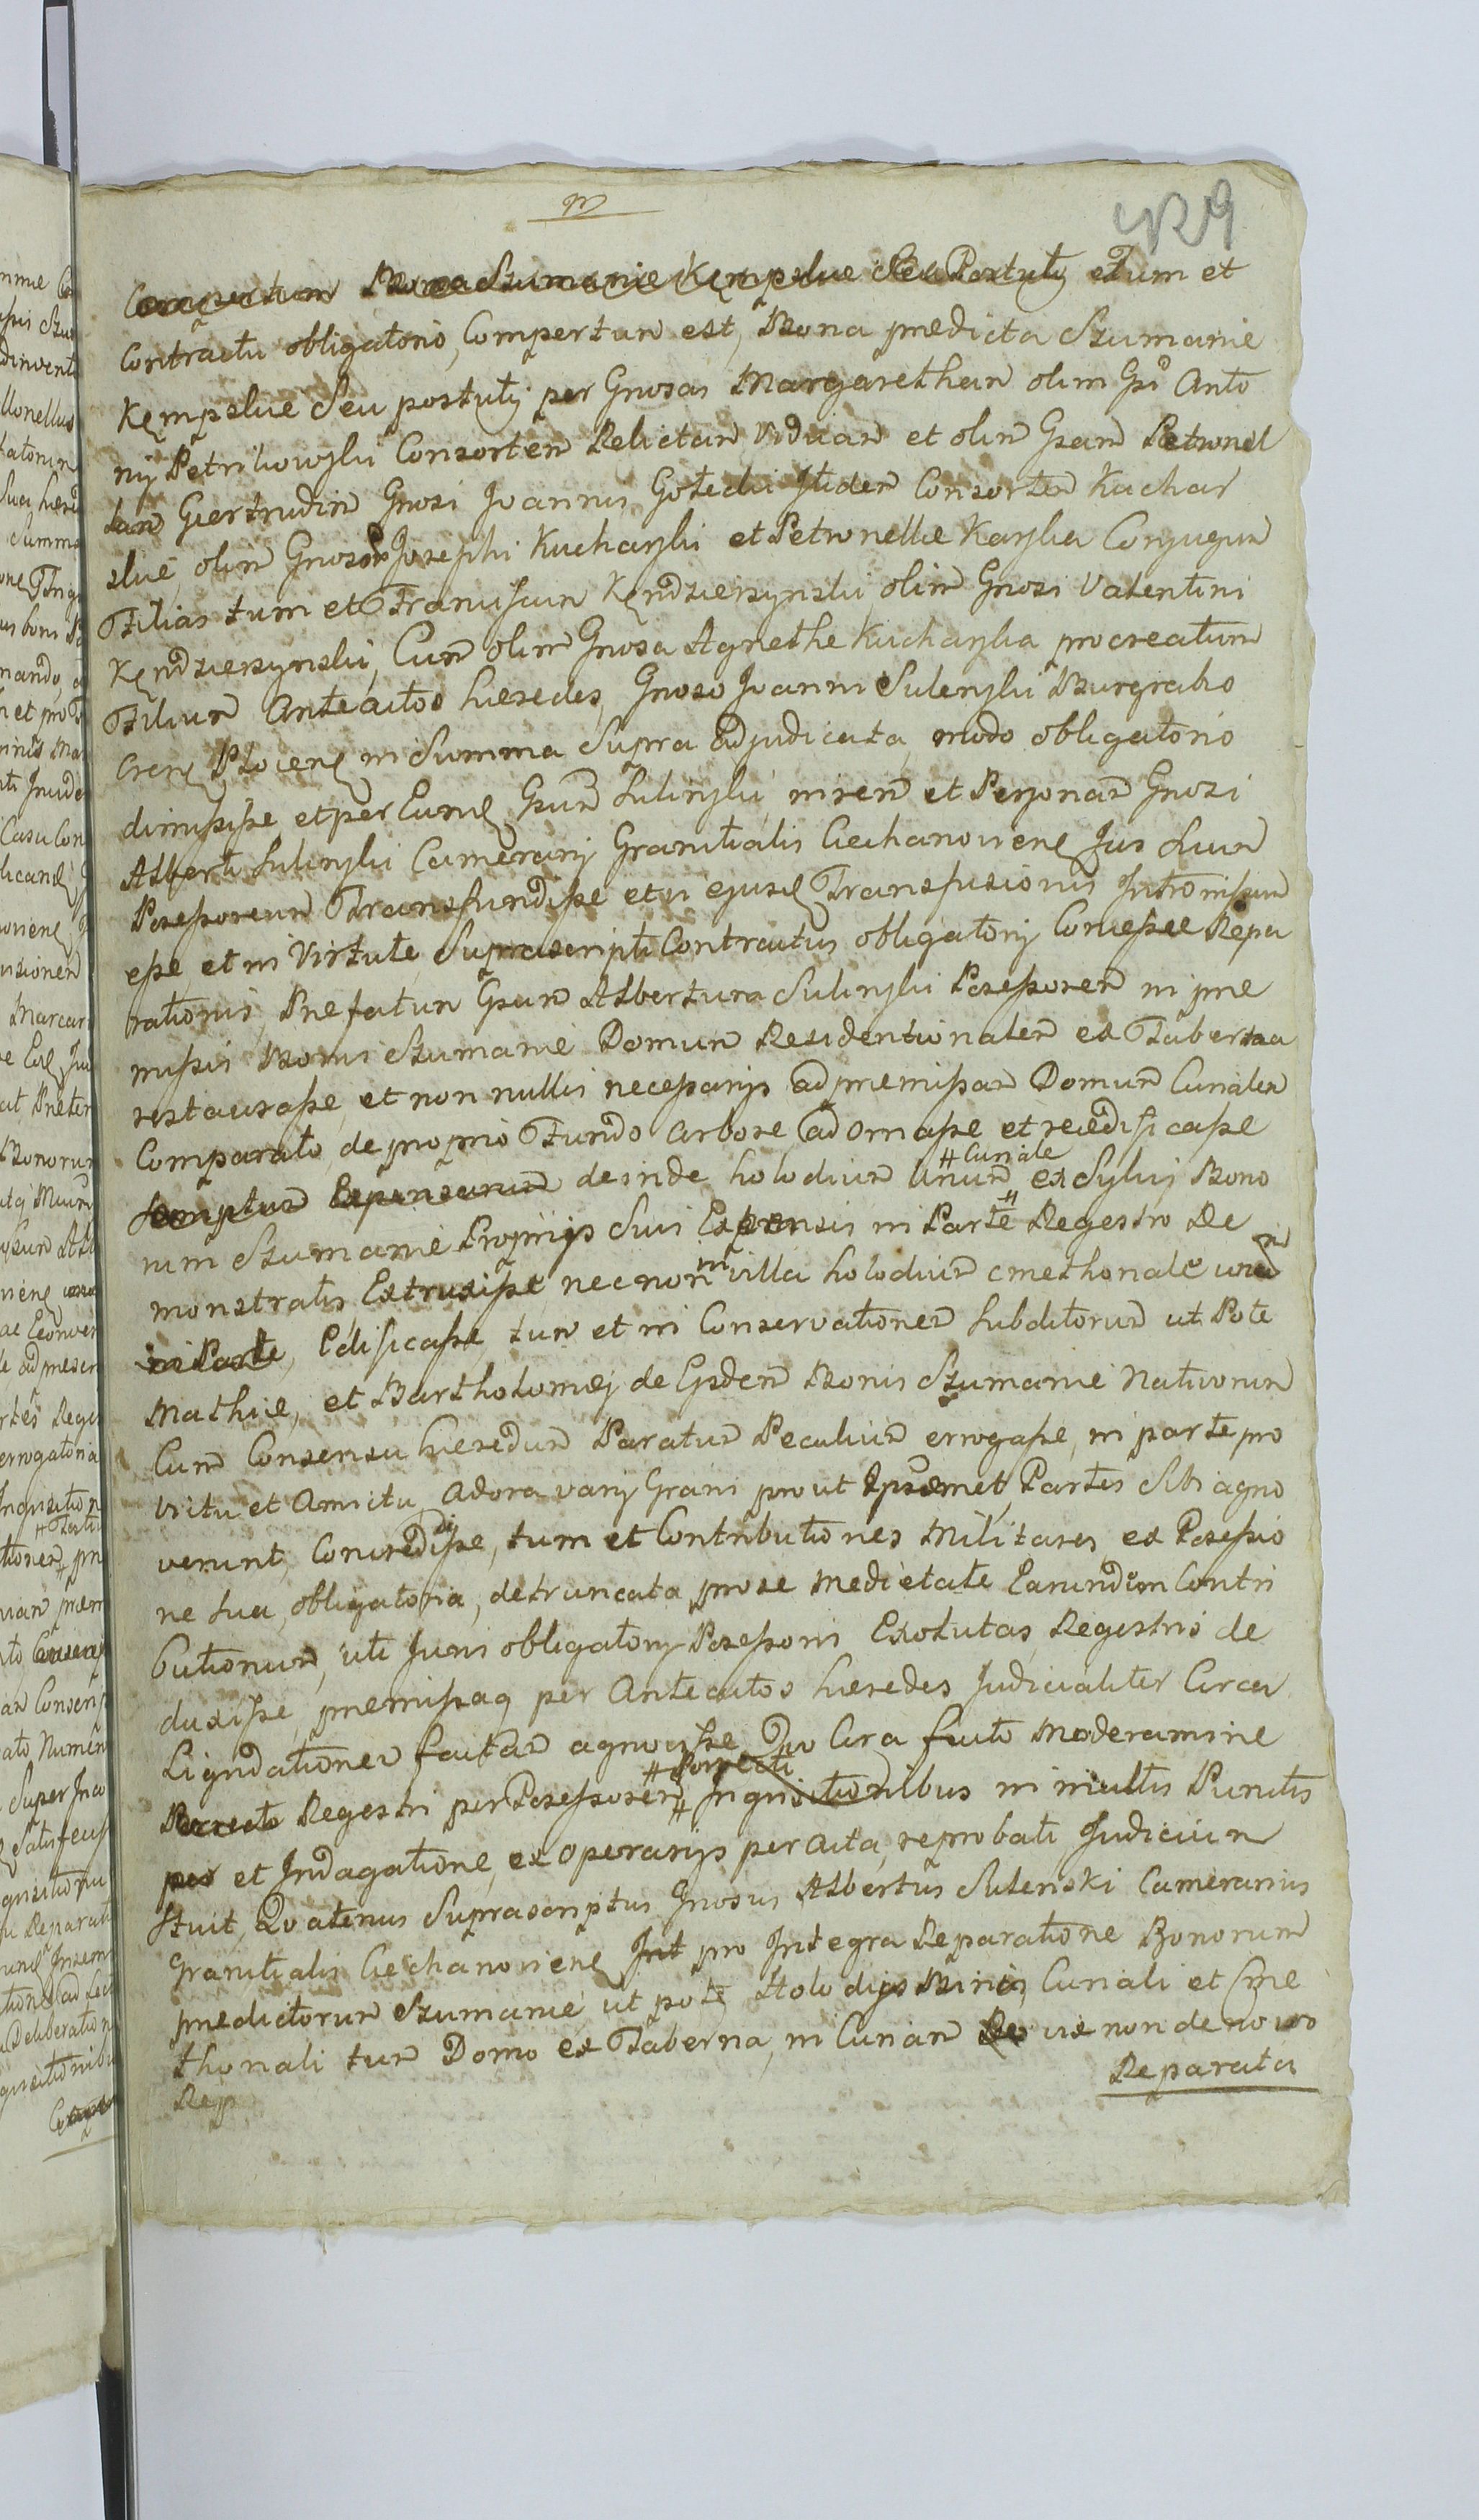 m
429
Compertum Bona Szumanie Kempskie Seu Postuły Tum et
Contractu obligatorio, Compertum est, Bona predicta Szumanie
Kempskie Seu postuły per Gnosas Margaretham olim Gsi Anto
nij Petrikowski Consortem Relictam Viduam et olim Gsam Petronel
lam Giertrudim Gnosi Joannis Gołecki Itidem Consortem Kuchar
skie, olim Gnosor Josephi Kucharski et Petronellæ Karska Conjugum
Filias tum et Franciscum Kendzierzynski olim Gnosi Valentini
Kendzierzynski, Cum olim Gnosa Agnethe Kucharska procreatum
Filium Anteactos hæredes, Gnoso Joanni Sulenski Burgrabio
Cren Plocen in Summa Supra adjudicata, modo obligatorio
dimisisse et per Eund Gsum Sulinski, in rem et Personam Gnosi
Alberti Sulinski Camerarij Granitialis Ciechanovien Jus Suum
Possessorium Transfundisse et vi ejusd Transfusionis Intromissum
esse, et in Virtute Suprascripti Contractus obligatorij Concesse Repa
rationis, Prefatum Gsum Albertum Sulinski Possessorem in pre
missis Bonis Szumanie Domum Residentionalem ex Taberna
restaurasse, et non nullis necessarijs ad premissam Domum Curialem
Comparato, de proprio Fundo arbore adornasse et reædificasse
Semptus Expensarum deinde holodium Unum # Curiale ex Sylvis Bono
rum Szumanie Proprijs Suis Expensis in Parte # Regestro De
monstratis Extruxisse, nec non in villa holodium cmethonale unum
in Parte, Edificasse, tum et in Conservationem Subditorum ut Pote
Mathiæ, et Bartholomæj de Eisdem Bonis Szumanie Nativorum
Cum Consensu hæredum Paratum Peculium errogasse, in parte pro
Victu et Amictu, Adora varij Grani prout Ipsæmet Partes Sibi agno
verunt, Concredidisse, tum et Contributiones Militares, ex Possessio
ne sua, obligatoria, detruncata prose medietate Earundem Contri
butionum, uti Juris obligatorij Possessori Exolutas Regestro de
duxisse, premissaq per Anteactos hæredes Judicialiter Circa
Liquidationem factam agnovisse. Quo Circa facto Moderamine
Porrecto Regestri per Possessorem # Porrecti # Inquisitionibus in multis Punctis
per et Indagatione, ex Operarijs peracta, reprobati, Judicium
Stuit, Quatenus Suprascriptus Gnosus Albertus Sulenski Camerarius
Granitialis Ciechanovien Int pro Integra Reparatione Bonorum
predictorum Szumanie, ut pote, Holodijs Binis, Curiali et Cme
thonali tum Domo ex Taberna, in Curiam Re vix non de novo
Rep
Reparata